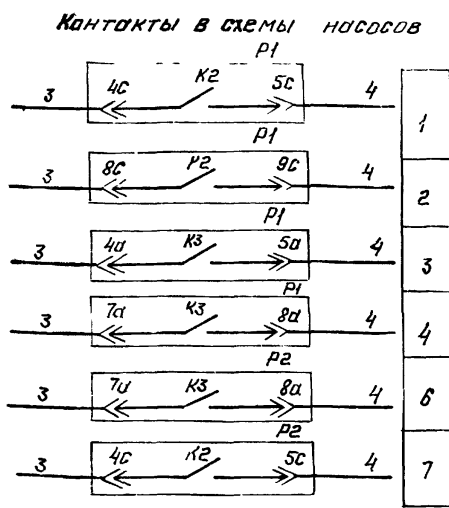 Контакты в схемы насосов
P1
3 4С К2 5С 4 1
P1
3 8С К2 9С 4 2
P1
3 4а К3 5а 4 3
P1
3 7а К3 8а 4 4
P2
3 7а К3 8а 4 6
P2
3 4С К2 5С 4 7